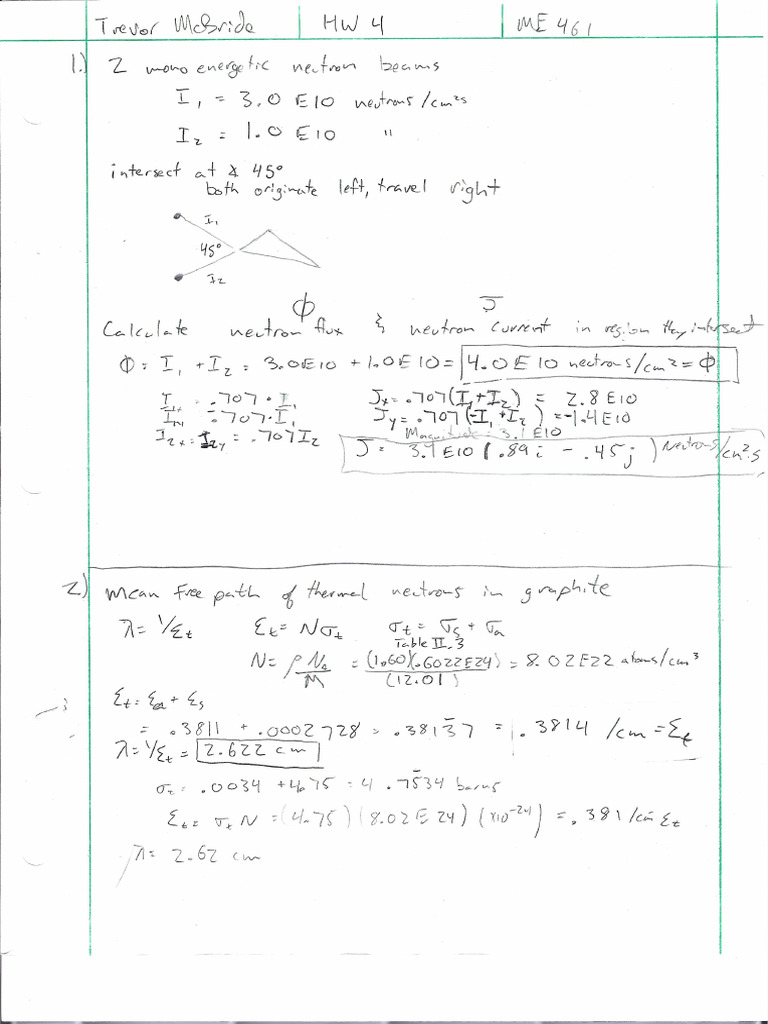 Trevor McBride HW 4 ME 461
1.) 2 monoenergetic neutron beams
I₁ = 3.0 E10 neutrons/cm²s
I₂ = 1.0 E10 "
intersect at ∡ 45°
both originate left, travel right
I₁
45°
I₂
ϕ J̄
Calculate neutron flux & neutron current in region they intersect
ϕ = I₁ + I₂ = 3.0E10 + 1.0E10 = 4.0 E10 neutrons/cm² = ϕ
I₁ₓ = .707 · I₁ Jₓ = .707(I₁+I₂) = 2.8 E10
I₁y = .707 · I₁ Jy = .707(-I₁+I₂) = -1.4E10
I₂ₓ = I₂y = .707 I₂ Magnitude = 3.1 E10
J = 3.1 E10 (.89 i - .45 j) Neutrons/cm²·s
2) Mean free path of thermal neutrons in graphite
λ = 1/Σt Σt = Nσt σt = σs + σa
Table II.3
N = ρNa/M = (1.60)(.6022E24)/(12.01) = 8.02E22 atoms/cm³
Σt = Σa + Σs
= .3811 + .0002728 = .38137 = .3814 /cm = Σt
λ = 1/Σt = 2.622 cm
σt = .0034 + 4.75 = 4.7534 barns
Σt = σt N = (4.75)(8.02E24)(x10⁻²⁴) = .381/cm Σt
λ = 2.62 cm